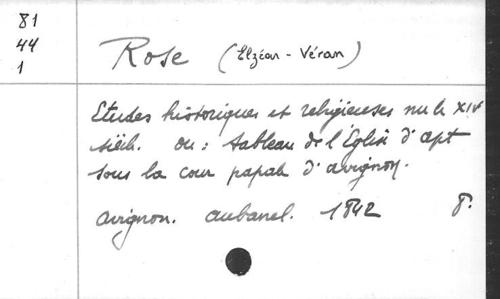 81
44
1
Rose (Elzéar - Véran)
Etudes historiques et religieuses sur le XIVe
siècle. ou : tableau de l'Église d'apt
sous la cour papale d'avignon.
avignon. aubanel. 1842 8.